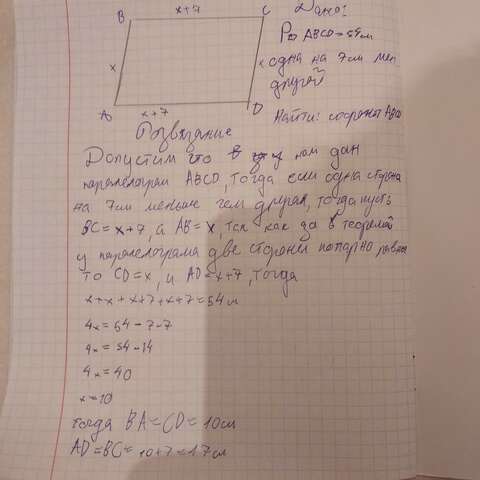 B x+7 C
Дано:
P▱ ABCD=54см
x x
одна на 7см мен
другой
A x+7 D
Найти: стороны ABCD
Розвязание
Допустим что нам дан
паралелограм ABCD, тогда если одна сторона
на 7см меньше чем другая, тогда пусть
BC=x+7, а AB=x, так как да в теореме
у паралелограма две стороны попарно равны
то CD=x, и AD=x+7, тогда
x+x+x+7+x+7=54см
4x=54-7-7
4x=54-14
4x=40
x=10
тогда BA=CD=10см
AD=BC=10+7=17см